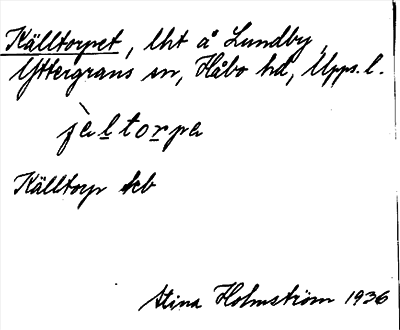 Källtorpet, lht å Lundby,
Yttergrans sn, Håbo hd, Upps. l.
jèltorpa
Källtorp
Stina Holmström 1936